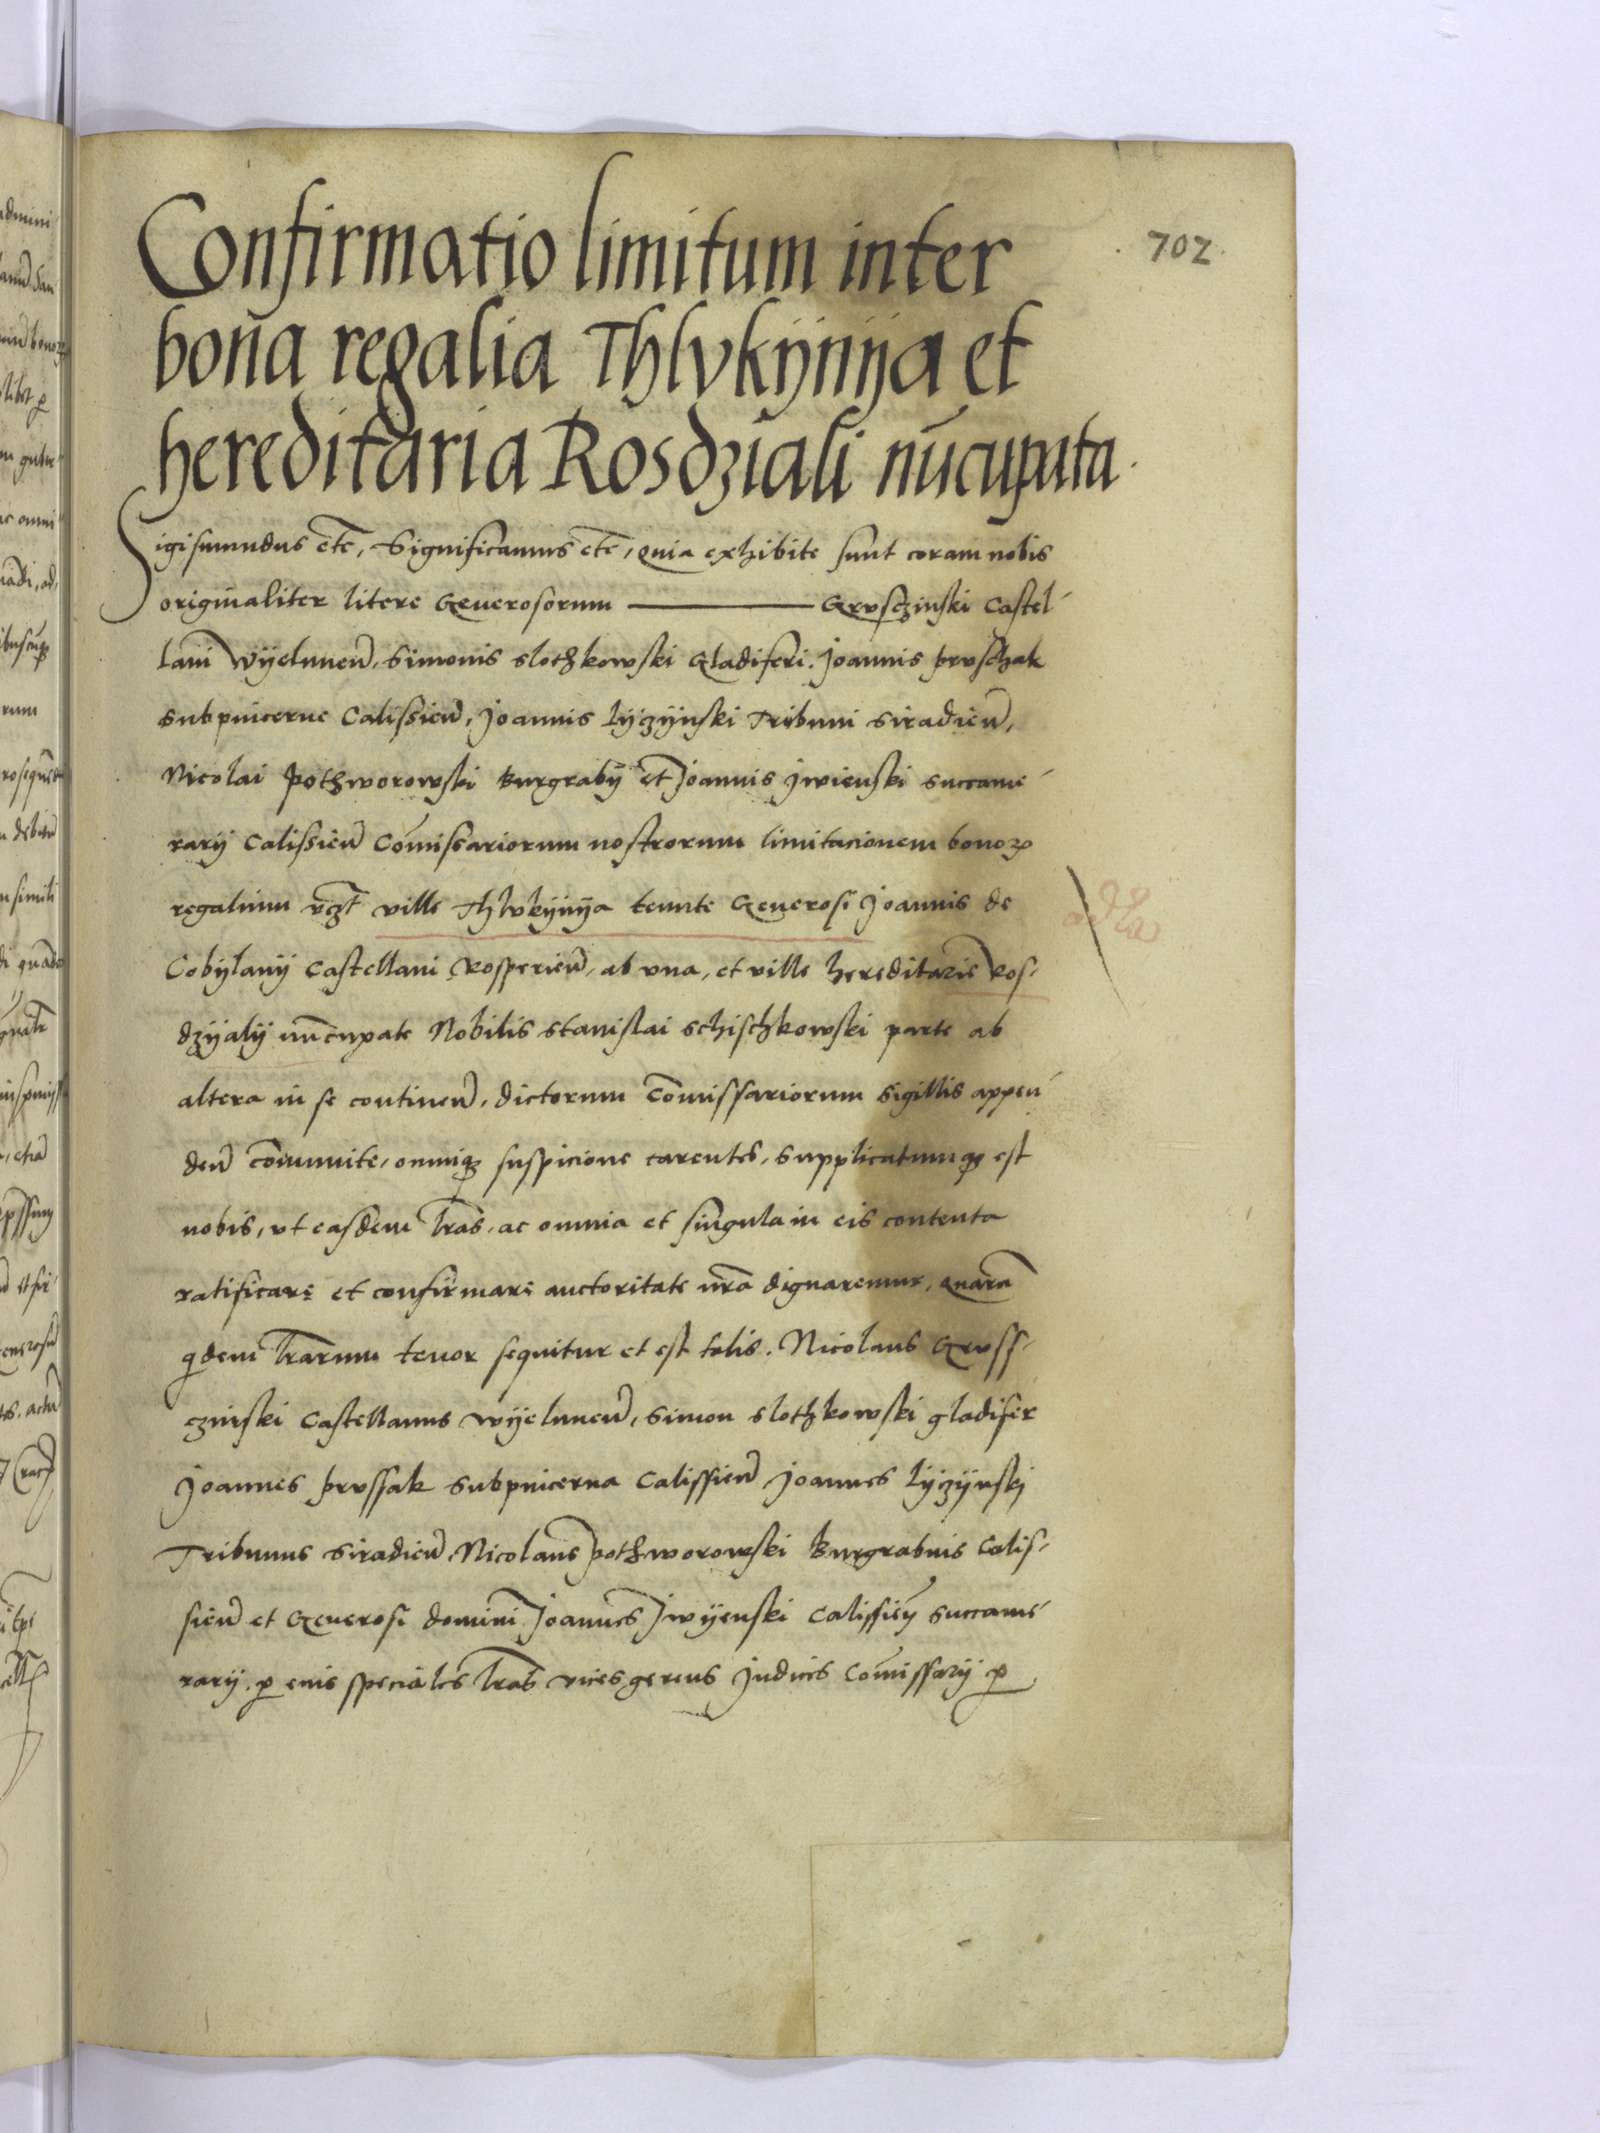 702
Confirmatio limitum inter
bona regalia Thlvkÿnÿa et
hereditaria Rosdziali nūcupata.
Sigismundus etc̄, Significamus etc̄, quia exhibite sunt coram nobis
originaliter litere Generosorum ——— Grusczinski Castel-
lani Wÿelunen̄, Simonis Slothkowski Gladiferi. Joannis pruschak
Subpincerne Calissien̄, Joannis Lÿczÿnski Tribuni Siradien̄,
Nicolai pothworowski Burgrabÿ et Joannis Jwienski Succame-
rarÿ Calissien̄ Com̄issariorum nostrorum limitacionem bonoꝝ
regalium vcꝫt ville Thlvkÿnÿa tenute Generosi Joannis de
Cobÿlanÿ Castellani Rosperien̄, ab vna, et ville hereditarie Ros-
dzÿalÿ nūcupate Nobilis Stanislai Schischkowski parte ab
altera in se continen̄, dictorum Com̄issariorum Sigillis appen-
den̄ com̄unite, omniqꝫ suspicione carentes, Supplicatumqꝫ est
nobis, vt easdem l̄ras, ac omnia et singula in eis contenta
ratificare et confirmare auctoritate n̄ra dignaremur, quarū
qͥdem l̄rarum tenor sequitur et est talis. Nicolaus Gruss-
czinski Castellanus Wÿelunen̄, Simon Slothkowski gladifer
Joannes prussak Subpincerna Calissien̄ Joannes Lÿczÿnski
Tribunus Siradien̄, Nicolaus pothworowski Burgrabius Calis-
sien̄ et Generosi domini Joannes Jwÿenski Calissien̄ Succame-
rarÿ, ꝑ eius speciales l̄ras vicesgerens Judices Com̄issarÿ ꝑ